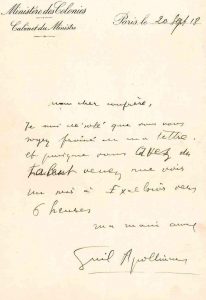 Ministère des Colonies
Cabinet du Ministre
Paris le 20 Sept 18
mon cher confrère,
Je suis que vous vous
soyez froissé de ma lettre
et puisque vous avez du
talent venez me voir
à Excelsior vers
6 heures
ma main amie
Guil Apollinaire